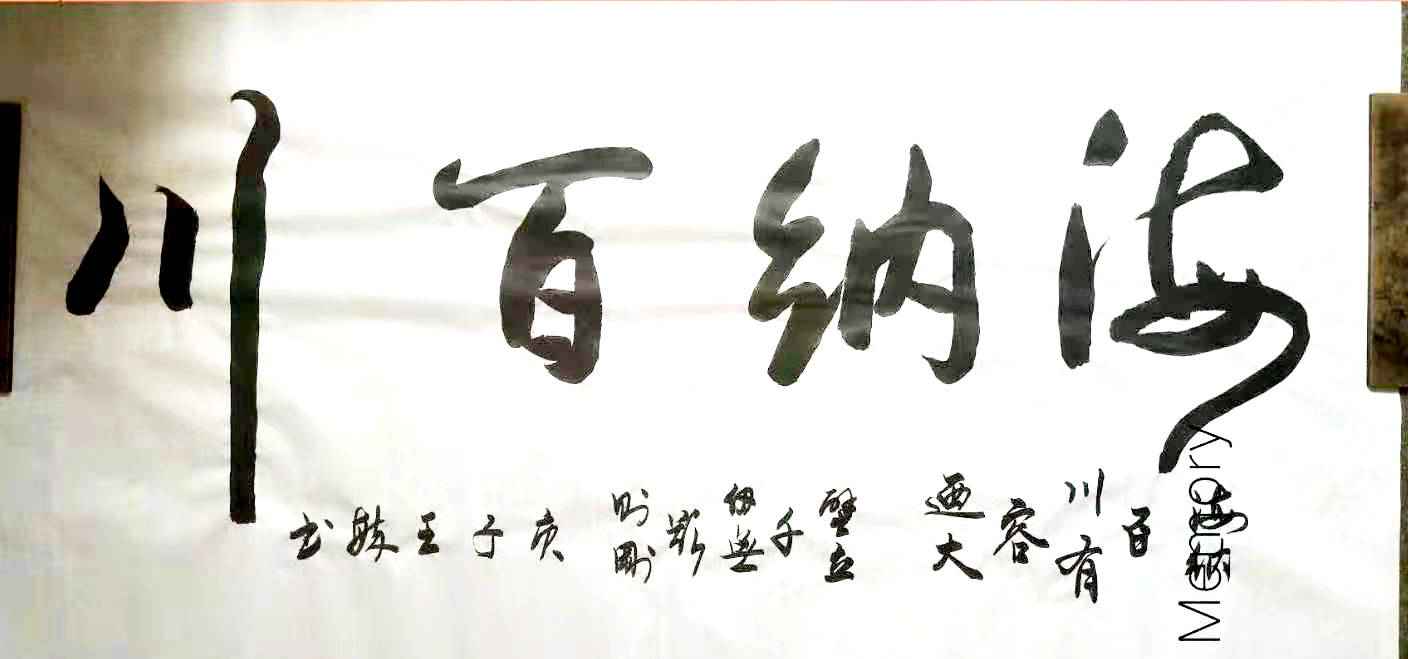 海纳百川
海纳百川有容迺大
壁立千仞無欲则剛
庚子王书
Memory